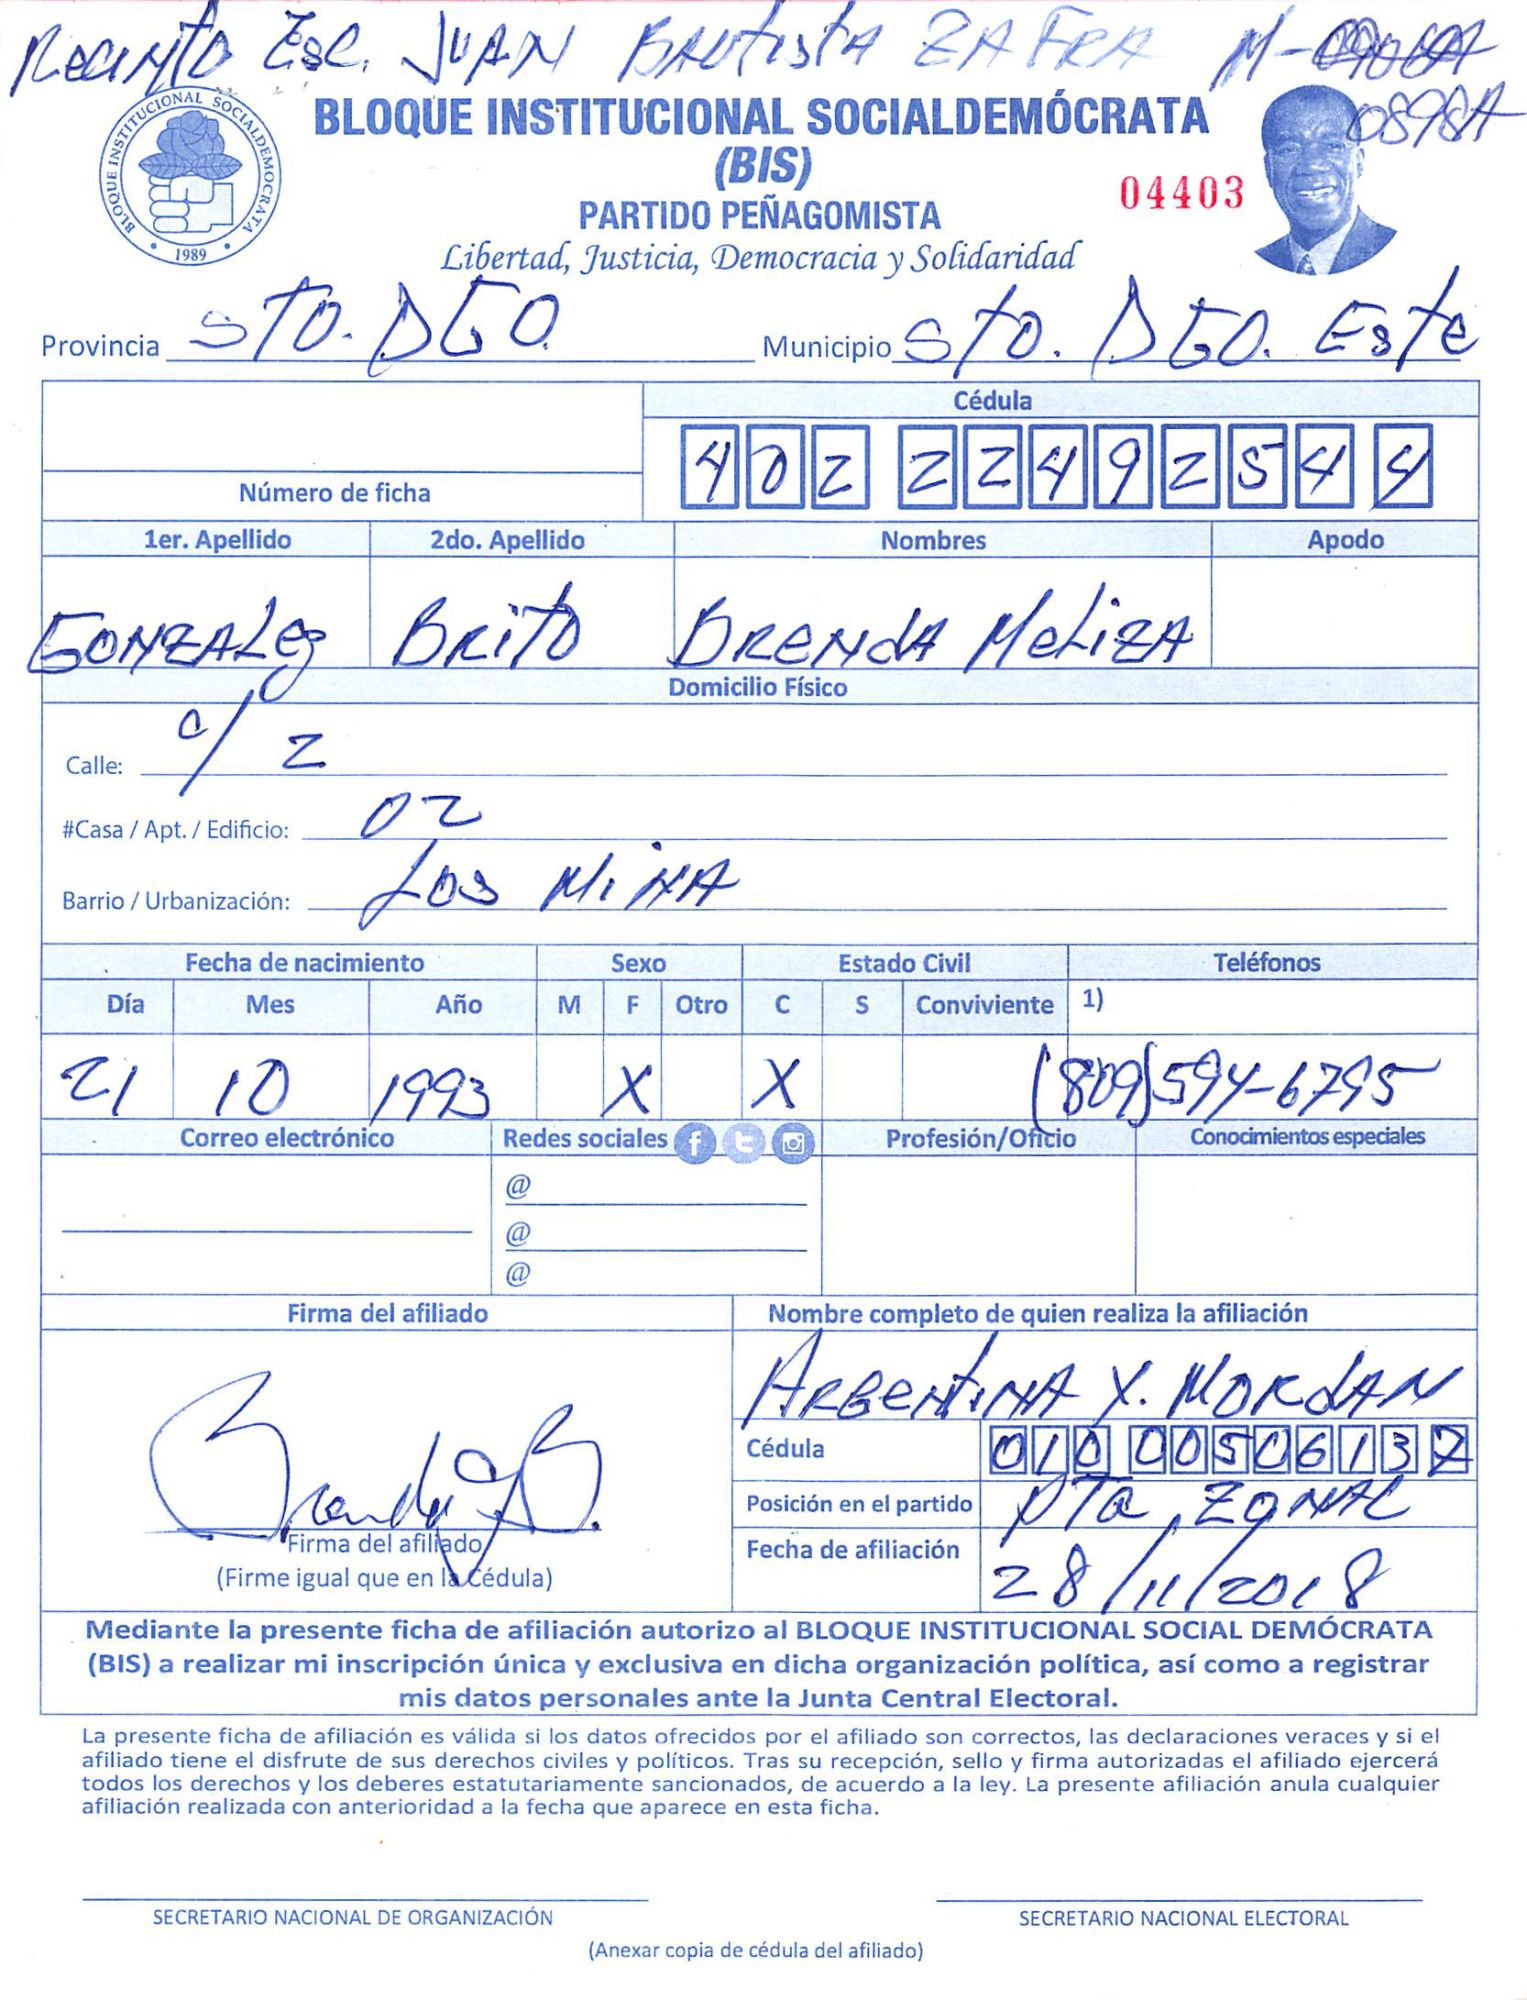 Recinto Esc. JUAN BAUtistA ZAFRA M-
0898A
BLOQUE INSTITUCIONAL SOCIALDEMÓCRATA
(BIS)
PARTIDO PEÑAGOMISTA
Libertad, Justicia, Democracia y Solidaridad
04403
BLOQUE INSTITUCIONAL SOCIALDEMOCRATA
1989
Provincia STO. DGO. Municipio STO. DGO. Este
Cédula
402 2249254 4
Número de ficha
1er. Apellido 2do. Apellido Nombres Apodo
GONZALez BRITO BRENdA MeLiZA
Domicilio Físico
Calle: c/ 2
#Casa / Apt. / Edificio: 02
Barrio / Urbanización: Los MiNA
Fecha de nacimiento Sexo Estado Civil Teléfonos
Día Mes Año M F Otro C S Conviviente 1)
21 10 1993 X X (809)594-6795
Correo electrónico Redes sociales Profesión/Oficio Conocimientos especiales
@
@
@
Firma del afiliado Nombre completo de quien realiza la afiliación
ARGentiNA X. MORdAN
Cédula 010 0050613 2
Posición en el partido PTa. ZONAL
Fecha de afiliación 28/11/2018
Firma del afiliado
(Firme igual que en la Cédula)
Mediante la presente ficha de afiliación autorizo al BLOQUE INSTITUCIONAL SOCIAL DEMÓCRATA
(BIS) a realizar mi inscripción única y exclusiva en dicha organización política, así como a registrar
mis datos personales ante la Junta Central Electoral.
La presente ficha de afiliación es válida si los datos ofrecidos por el afiliado son correctos, las declaraciones veraces y si el
afiliado tiene el disfrute de sus derechos civiles y políticos. Tras su recepción, sello y firma autorizadas el afiliado ejercerá
todos los derechos y los deberes estatutariamente sancionados, de acuerdo a la ley. La presente afiliación anula cualquier
afiliación realizada con anterioridad a la fecha que aparece en esta ficha.
SECRETARIO NACIONAL DE ORGANIZACIÓN SECRETARIO NACIONAL ELECTORAL
(Anexar copia de cédula del afiliado)